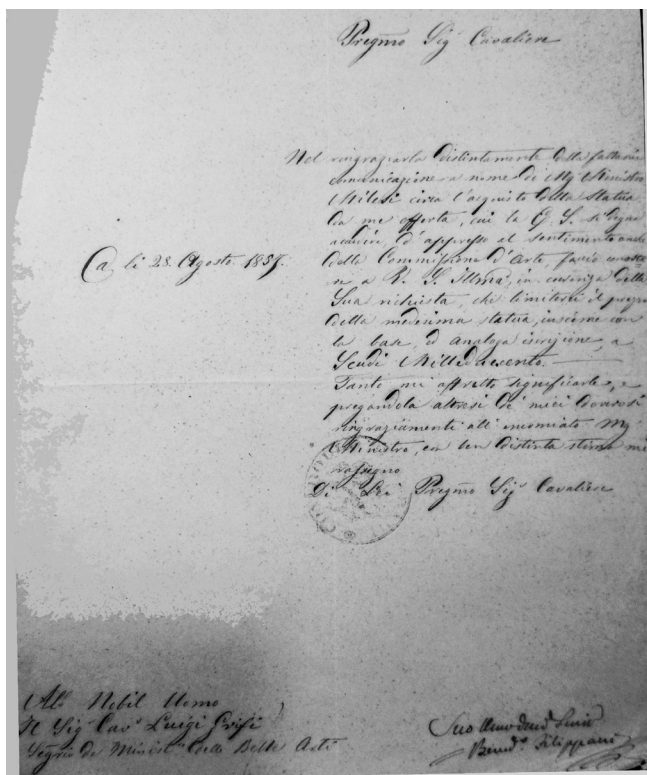 Pregmo Sig Cavaliere
Nel ringraziarla distintamente della fattami
comunicazione a nome di Mg Ministro
Milesi circa l'acquisto della Statua
da me offerta, cui la
d'appresso il sentimento anche
Ca li 28 Agosto 1857.
della Commissione d'Arte, faccio
a V. S. Illma, in della
Sua richiesta, che limiterei il prezzo
della medesima statua, insieme con
la base, ed analoga iscrizione, a
Scudi Milleduecento.
Tanto mi affretto significarle, e
pregandola altresì de' miei doverosi
ringraziamenti all' encomiato Mg
Ministro, con ben distinta stima mi
rassegno
Di Lei Pregmo Sig Cavaliere
Al Nobil Uomo
Il Sig Cav Luigi Grifi
Segrio del Minist delle Belle Arti
Suo
Filippani